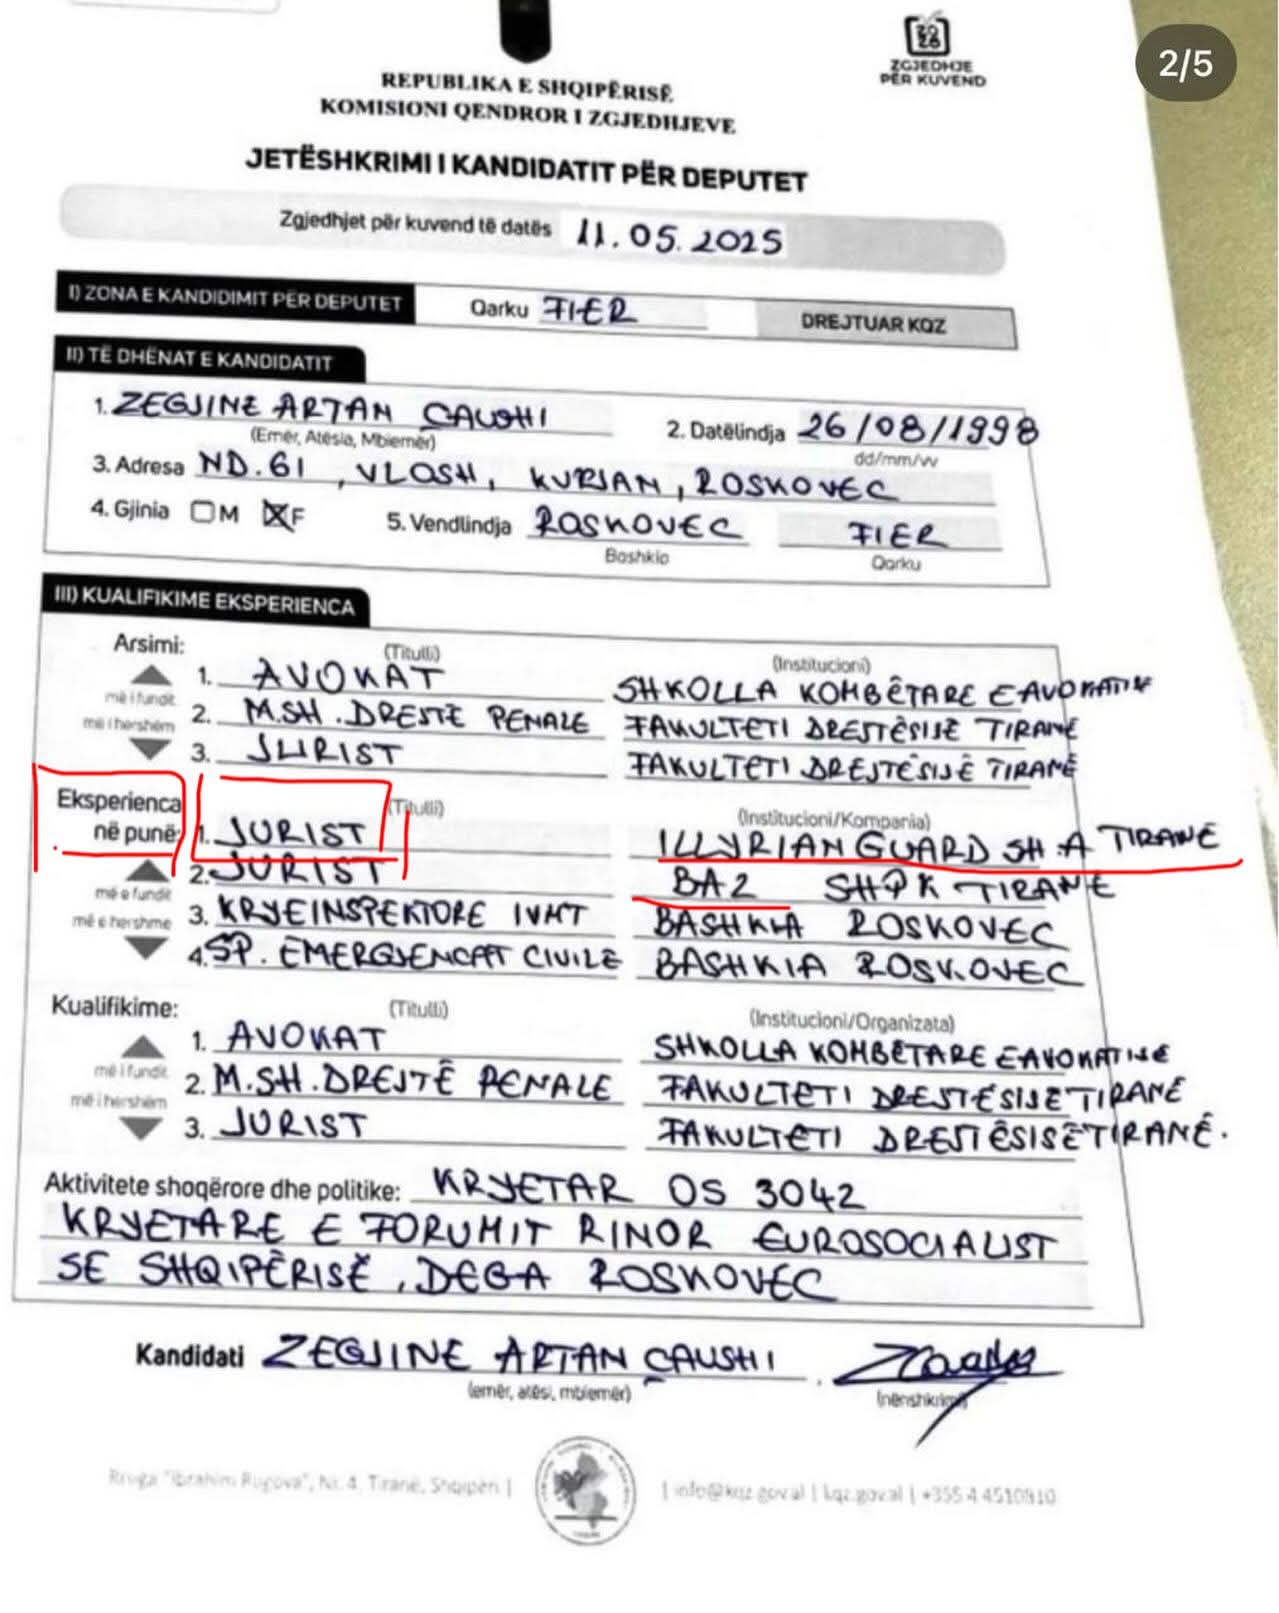 2/5
ZGJEDHJE
PËR KUVEND
REPUBLIKA E SHQIPËRISË
KOMISIONI QENDROR I ZGJEDHJEVE
JETËSHKRIMI I KANDIDATIT PËR DEPUTET
Zgjedhjet për kuvend të datës 11.05.2025
I) ZONA E KANDIDIMIT PËR DEPUTET Qarku FIER DREJTUAR KQZ
II) TË DHËNAT E KANDIDATIT
1. ZEGJINE ARTAN ÇAUSHI 2. Datëlindja 26/08/1998
(Emër, Atësia, Mbiemër) dd/mm/vv
3. Adresa ND.61, VLOSH, KURJAN, ROSKOVEC
4. Gjinia M F 5. Vendlindja ROSKOVEC FIER
Bashkia Qarku
III) KUALIFIKIME EKSPERIENCA
Arsimi: (Titulli) (Institucioni)
1. AVOKAT SHKOLLA KOMBËTARE E AVOKATISË
më i fundit
2. M.SH. DREJTË PENALE FAKULTETI DREJTËSISË TIRANË
më i hershëm
3. JURIST FAKULTETI DREJTËSISË TIRANË
Eksperienca (Titulli) (Institucioni/Kompania)
në punë: 1. JURIST ILLYRIAN GUARD SH.A TIRANË
2. JURIST BA2 SHPK TIRANË
më e fundit
3. KRYEINSPEKTORE IVMT BASHKIA ROSKOVEC
më e hershme
4. SP. EMERGJENCAT CIVILE BASHKIA ROSKOVEC
Kualifikime: (Titulli) (Institucioni/Organizata)
1. AVOKAT SHKOLLA KOMBËTARE E AVOKATISË
më i fundit
2. M.SH. DREJTË PENALE FAKULTETI DREJTËSISË TIRANË
më i hershëm
3. JURIST FAKULTETI DREJTËSISË TIRANË.
Aktivitete shoqërore dhe politike: KRYETAR OS 3042
KRYETARE E FORUMIT RINOR EUROSOCIALIST
SE SHQIPËRISË, DEGA ROSKOVEC
Kandidati ZEGJINE ARTAN ÇAUSHI
(emër, atësi, mbiemër) (nënshkrimi)
Rruga "Ibrahim Rugova", Nr. 4. Tiranë, Shqipëri | | info@kqz.gov.al | kqz.gov.al | +355 4 4510910